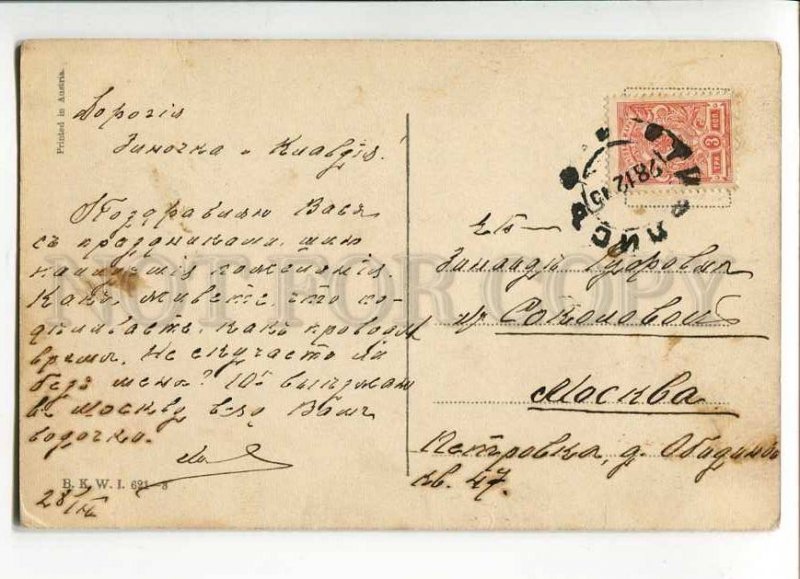 Printed in Austria.
Дорогія
Зиночка и Клавдія!
Поздравляю Васъ
съ праздниками, шлю
наилучшія пожеланія.
Какъ живете, что по-
дѣлываете, какъ проводите
время. Не скучаете ли
безъ меня? 10го выѣзжаю
въ Москву Ваша
28/XII
B.K.W.I. 691-8
ТИФЛИСЪ
28.12.
Зинаидѣ
Соколовой
Москва
Петровка, д.
кв. 47.
NOT FOR COPY